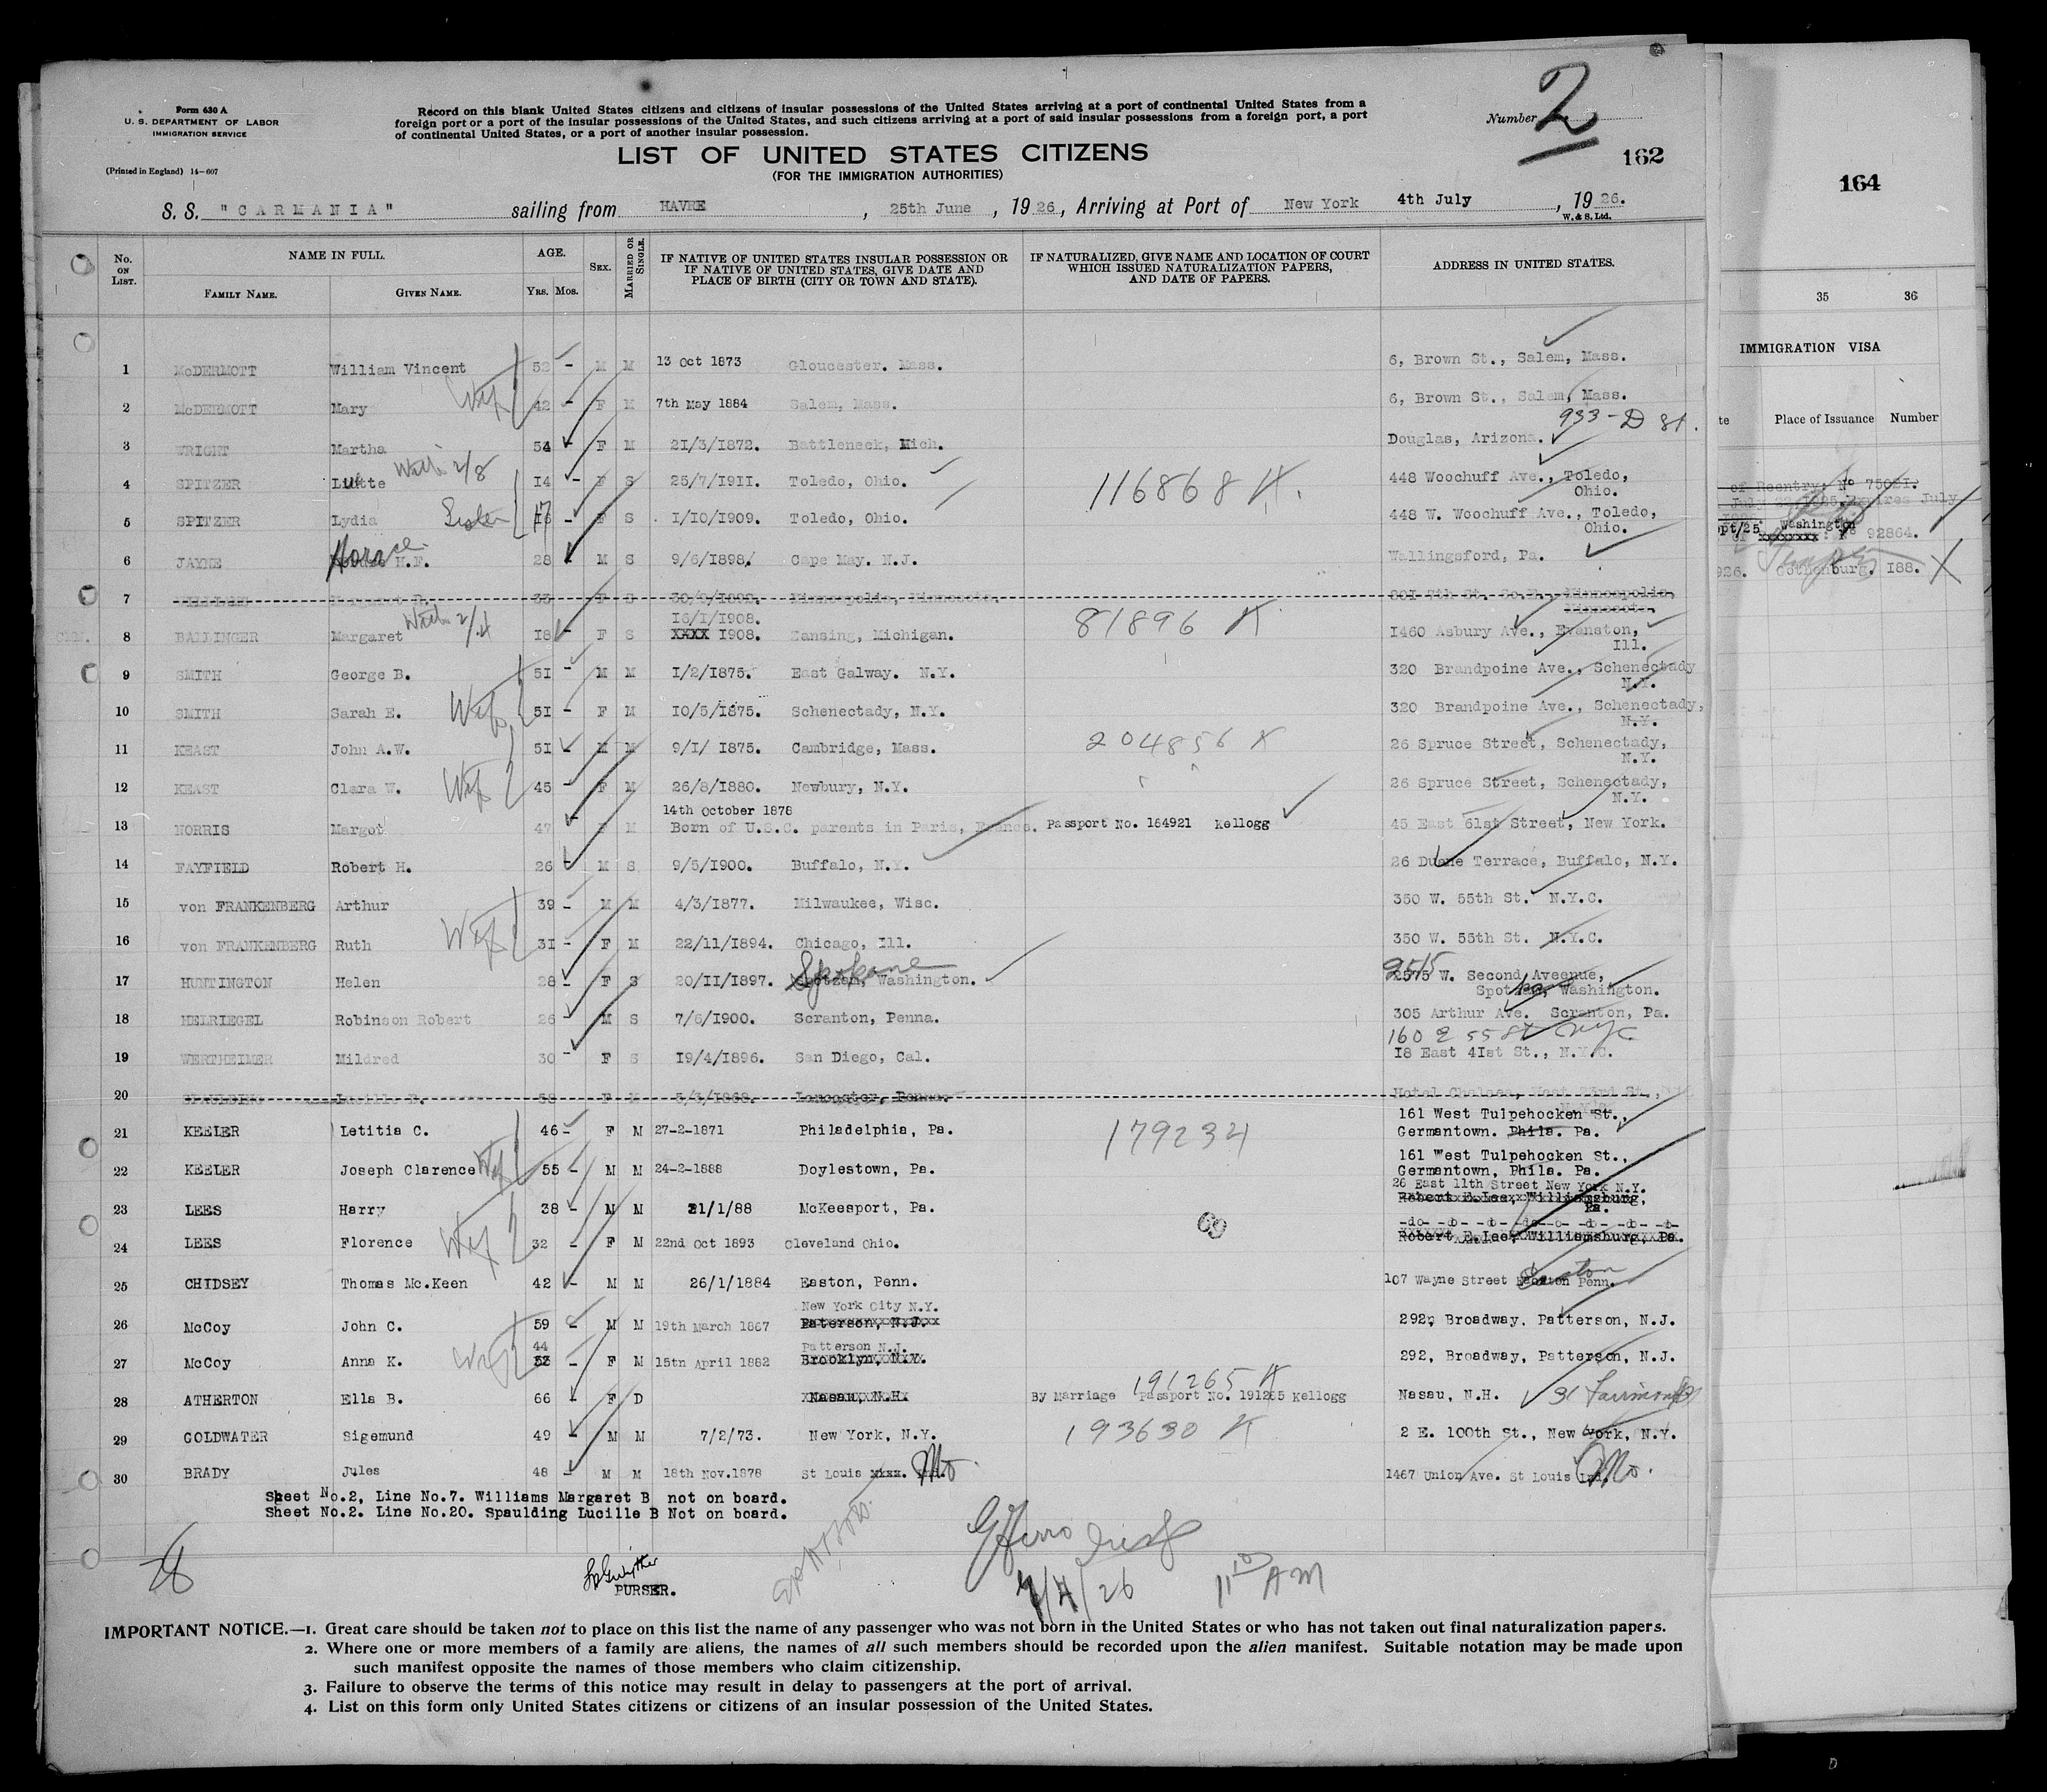 Form 630 A
U. S. DEPARTMENT OF LABOR
IMMIGRATION SERVICE
(Printed in England) 14-607
Record on this blank United States citizens and citizens of insular possessions of the United States arriving at a port of continental United States from a
foreign port or a port of the insular possessions of the United States, and such citizens arriving at a port of said insular possessions from a foreign port, a port
of continental United States, or a port of another insular possession.
Number 2
LIST OF UNITED STATES CITIZENS
(FOR THE IMMIGRATION AUTHORITIES)
162
S. S. "CARMANIA" sailing from HAVRE, 25th June, 1926, Arriving at Port of New York 4th July, 1926.
W. & S. Ltd.
No. ON LIST. NAME IN FULL. AGE. SEX. MARRIED OR SINGLE. IF NATIVE OF UNITED STATES INSULAR POSSESSION OR IF NATIVE OF UNITED STATES, GIVE DATE AND PLACE OF BIRTH (CITY OR TOWN AND STATE). IF NATURALIZED, GIVE NAME AND LOCATION OF COURT WHICH ISSUED NATURALIZATION PAPERS, AND DATE OF PAPERS. ADDRESS IN UNITED STATES.
FAMILY NAME. GIVEN NAME. YRS. MOS.
1 McDERMOTT William Vincent 52 - M M 13 Oct 1873 Gloucester. Mass. 6, Brown St., Salem, Mass.
2 McDERMOTT Mary Wife 42 - F M 7th May 1884 Salem, Mass. 6, Brown St., Salem, Mass.
933 - D St.
3 WRIGHT Martha 54 - F M 21/3/1872. Battleneck, Mich. Douglas, Arizona.
With 2/8
4 SPITZER 14 - F S 25/7/1911. Toledo, Ohio. 116868 K. 448 Woochuff Ave., Toledo,
Ohio.
5 SPITZER Lydia Sister - F S 1/10/1909. Toledo, Ohio. 448 W. Woochuff Ave., Toledo,
Ohio.
6 JAYNE Horace H.F. 28 - M S 9/6/1898. Cape May. N.J. Wallingsford, Pa.
7 33 F S 30/9/1892. Minneapolis, Minnesota. 801 7th St. So.E., Minneapolis,
Minnesota.
With 2/4 16/1/1908.
8 BALLINGER Margaret 18 - F S XXXX 1908. Lansing, Michigan. 81896 K 1460 Asbury Ave., Evanston,
Ill.
9 SMITH George B. 51 - M M 1/2/1875. East Galway. N.Y. 320 Brandpoine Ave., Schenectady
N.Y.
10 SMITH Sarah E. Wife 51 - F M 10/5/1875. Schenectady, N.Y. 320 Brandpoine Ave., Schenectady,
N.Y.
11 KEAST John A.W. 51 - M M 9/1/ 1875. Cambridge, Mass. 204856 K 26 Spruce Street, Schenectady,
N.Y.
12 KEAST Clara W. Wife 45 - F M 26/8/1880. Newbury, N.Y. " " 26 Spruce Street, Schenectady,
N.Y.
14th October 1878
13 NORRIS Margot 47 - F M Born of U.S.C. parents in Paris, France. Passport No. 164921 Kellogg 45 East 61st Street, New York.
14 FAYFIELD Robert H. 26 - M S 9/5/1900. Buffalo, N.Y. 26 Duane Terrace, Buffalo, N.Y.
15 von FRANKENBERG Arthur 39 - M M 4/3/1877. Milwaukee, Wisc. 350 W. 55th St. N.Y.C.
16 von FRANKENBERG Ruth Wife 31 - F M 22/11/1894. Chicago, Ill. 350 W. 55th St. N.Y.C.
Spokane 2515
17 HUNTINGTON Helen 28 - F S 20/11/1897. Spotzam, Washington. 2575 W. Second Aveenue,
Washington.
18 HELRIEGEL Robinson Robert 26 - M S 7/6/1900. Scranton, Penna. 305 Arthur Ave. Scranton, Pa.
160 E 55 St NYC
19 WERTHEIMER Mildred 30 - F S 19/4/1896. San Diego, Cal. 18 East 41st St., N.Y.C.
20 SPAULDING Lucille B. 58 F M 5/3/1868. Lancaster, Penna. Hotel Chelsea, West 23rd St.,
161 West Tulpehocken St.,
21 KEELER Letitia C. 46 - F M 27-2-1871 Philadelphia, Pa. 179234 Germantown. Phila. Pa.
161 West Tulpehocken St.,
22 KEELER Joseph Clarence Wife 55 - M M 24-2-1888 Doylestown, Pa. Germantown, Phila. Pa.
26 East 11th Street New York N.Y.
23 LEES Harry 38 - M M 21/1/88 McKeesport, Pa. Robert E.Lee, Williamsburg,
Pa.
-do- -do- -do- -do- -do- -do- -do- -do-
24 LEES Florence Wife 32 - F M 22nd Oct 1893 Cleveland Ohio. Robert E.Lee, Williamsburg, Pa.
25 CHIDSEY Thomas Mc.Keen 42 - M M 26/1/1884 Easton, Penn. 107 Wayne Street Easton Penn.
New York City N.Y.
26 McCoy John C. 59 - M M 19th March 1867 Paterson, N.J. 292, Broadway, Patterson, N.J.
44 Patterson N.J.
27 McCoy Anna K. Wife 53 - F M 15tn April 1882 Brooklyn, N.Y. 292, Broadway, Patterson, N.J.
191265 K
28 ATHERTON Ella B. 66 - F D Nasau, N.H. By Marriage Passport No. 191265 Kellogg Nasau, N.H. 31
29 GOLDWATER Sigemund 49 - M M 7/2/73. New York, N.Y. 193630 K 2 E. 100th St., New York, N.Y.
30 BRADY Jules 48 - M M 18th Nov.1878 St Louis xxxx. Ind. Mo. 1467 Union Ave. St Louis Ind. Mo.
Sheet No.2, Line No.7. Williams Margaret B not on board.
Sheet No.2. Line No.20. Spaulding Lucille B Not on board.
PURSER.
7/4/26 11 10 AM
IMPORTANT NOTICE.—1. Great care should be taken not to place on this list the name of any passenger who was not born in the United States or who has not taken out final naturalization papers.
2. Where one or more members of a family are aliens, the names of all such members should be recorded upon the alien manifest. Suitable notation may be made upon
such manifest opposite the names of those members who claim citizenship.
3. Failure to observe the terms of this notice may result in delay to passengers at the port of arrival.
4. List on this form only United States citizens or citizens of an insular possession of the United States.
164
35 36
IMMIGRATION VISA
te Place of Issuance Number
of Reentry. No 75021.
July 1925, Expires July
pt/25 Washington
xxxxxxxx 92864.
926. Gothenburg. 188.